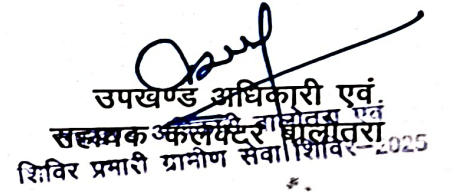 उपखण्ड अधिकारी एवं
सहायक कलक्टर बालोतरा
बालोतरा एवं
शिविर प्रभारी ग्रामीण सेवा शिविर-2025